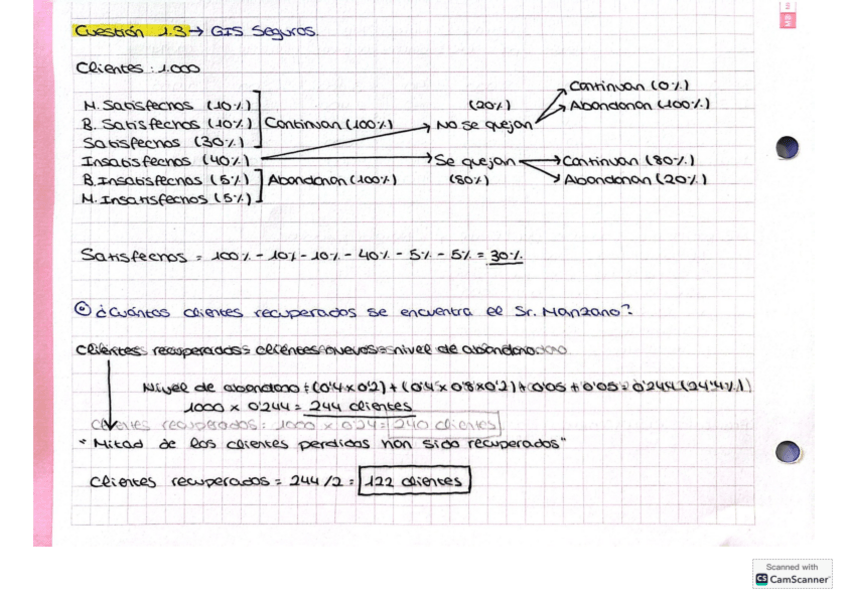 Cuestión 1.3 → GIS Seguros.
Clientes: 1.000
Continuan (0%)
M. Satisfechos (10%) (20%) Abandonan (100%)
B. Satisfechos (10%) Continuan (100%) No se quejan
Satisfechos (30%)
Insatisfechos (40%) Se quejan → Continuan (80%)
B. Insatisfechos (5%) Abandonan (100%) (80%) Abandonan (20%)
M. Insatisfechos (5%)
Satisfechos = 100% - 10% - 10% - 40% - 5% - 5% = 30%
¿Cuántos clientes recuperados se encuentra el Sr. Manzano?
Clientes recuperados = clientes nuevos = nivel de abandono
Nivel de abandono = (0'4 x 0'2) + (0'4 x 0'8 x 0'2) + 0'05 + 0'05 = 0'244 (24'4%)
1000 x 0'244 = 244 clientes
Clientes recuperados = 1000 x 0'24 = 240 clientes
"Mitad de los clientes perdidos han sido recuperados"
Clientes recuperados = 244 / 2 = 122 clientes
Scanned with
CS CamScanner